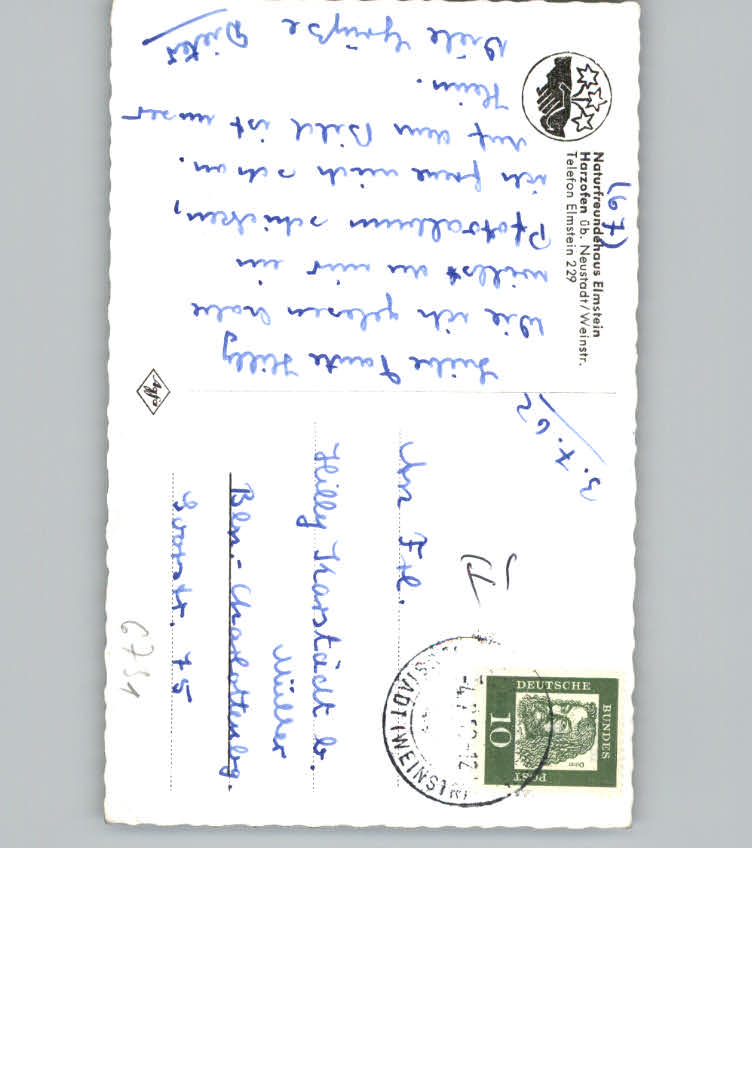 Naturfreundehaus Elmstein
Harzofen üb. Neustadt/Weinstr.
Telefon Elmstein 229
(67)
3. X. 62
Liebe Tante Hilly
Wie ich gelesen habe
willst du mir ein
Pfotoalbum schicken,
ich freue mich schon.
Auf dem Bild ist unser
Heim.
Viele Grüße
Dieter
An Frl.
Hilly Karstädt b.
Müller
Bln.-Charlottenbg.
75
6731
DEUTSCHE
BUNDES
POST
10
Dürer